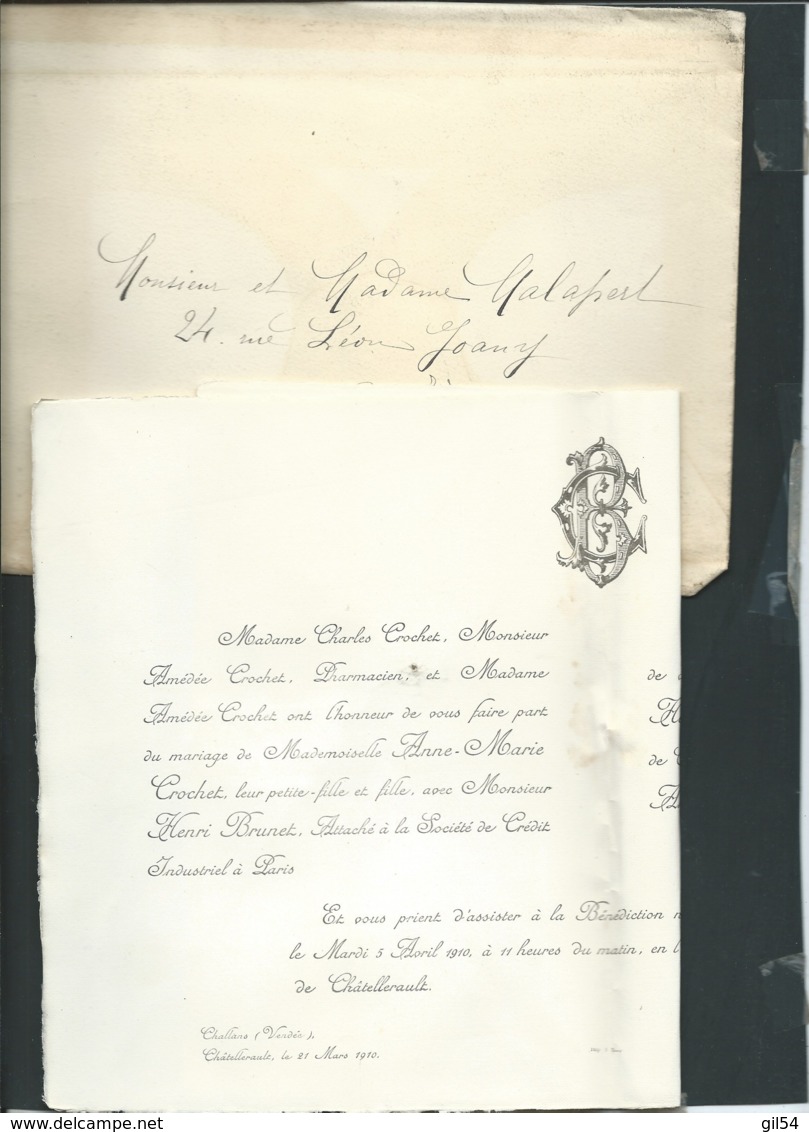 Monsieur et Madame Malapert
24. rue Léon Joany
Madame Charles Crochet, Monsieur
Amédée Crochet, Pharmacien, et Madame
Amédée Crochet ont l'honneur de vous faire part
du mariage de Mademoiselle Anne-Marie
Crochet, leur petite-fille et fille, avec Monsieur
Henri Brunet, Attaché à la Société de Crédit
Industriel à Paris
de
de
Et vous prient d'assister à la Bénédiction
le Mardi 5 Avril 1910, à 11 heures du matin, en l'
de Châtellerault.
Challans (Vendée),
Châtellerault, le 21 Mars 1910.
delcampe.net
gil54